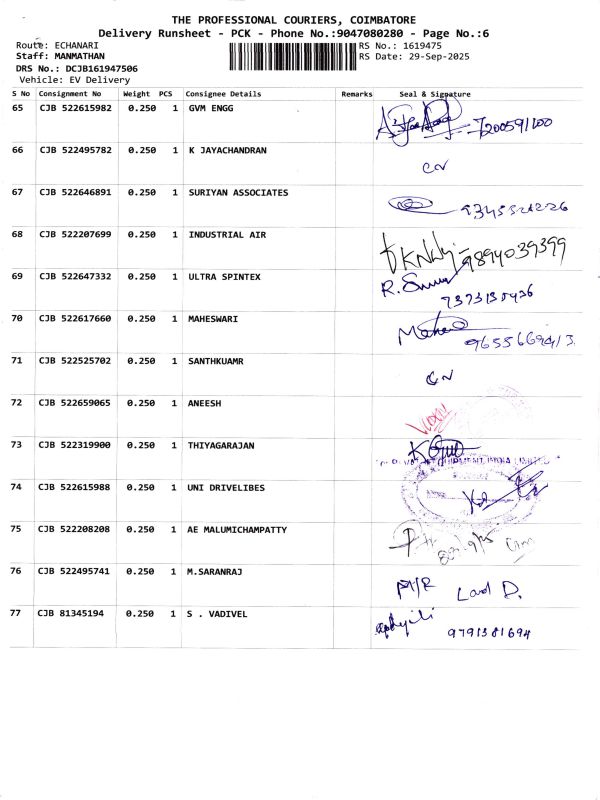 THE PROFESSIONAL COURIERS, COIMBATORE
Delivery Runsheet - PCK - Phone No.:9047080280 - Page No.:6
Route: ECHANARI RS No.: 1619475
Staff: MANMATHAN RS Date: 29-Sep-2025
DRS No.: DCJB161947506
Vehicle: EV Delivery
S No Consignment No Weight PCS Consignee Details Remarks Seal & Signature
65 CJB 522615982 0.250 1 GVM ENGG 7200591100
66 CJB 522495782 0.250 1 K JAYACHANDRAN CN
67 CJB 522646891 0.250 1 SURIYAN ASSOCIATES
68 CJB 522207699 0.250 1 INDUSTRIAL AIR 9894039399
69 CJB 522647332 0.250 1 ULTRA SPINTEX R.
7373135436
70 CJB 522617660 0.250 1 MAHESWARI
9655669413
71 CJB 522525702 0.250 1 SANTHKUAMR CN
72 CJB 522659065 0.250 1 ANEESH
73 CJB 522319900 0.250 1 THIYAGARAJAN
74 CJB 522615988 0.250 1 UNI DRIVELIBES
75 CJB 522208208 0.250 1 AE MALUMICHAMPATTY
76 CJB 522495741 0.250 1 M.SARANRAJ
77 CJB 81345194 0.250 1 S . VADIVEL 9791381694